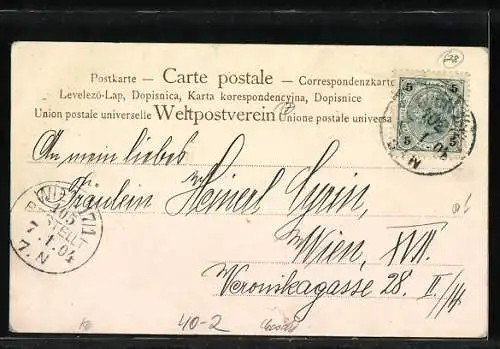 Postkarte — Carte postale — Correspondenzkarte
Levelező-Lap, Dopisnica, Karta korespondencyjna, Dopisnice
Union postale universelle Weltpostverein Unione postale universa
5 5
5 5
An mein liebes
Fräulein Heinerl
Wien, XVII.
Veronikagasse 28. II/
17/1
105
BESTELLT
7.1.04
7.N
40-2